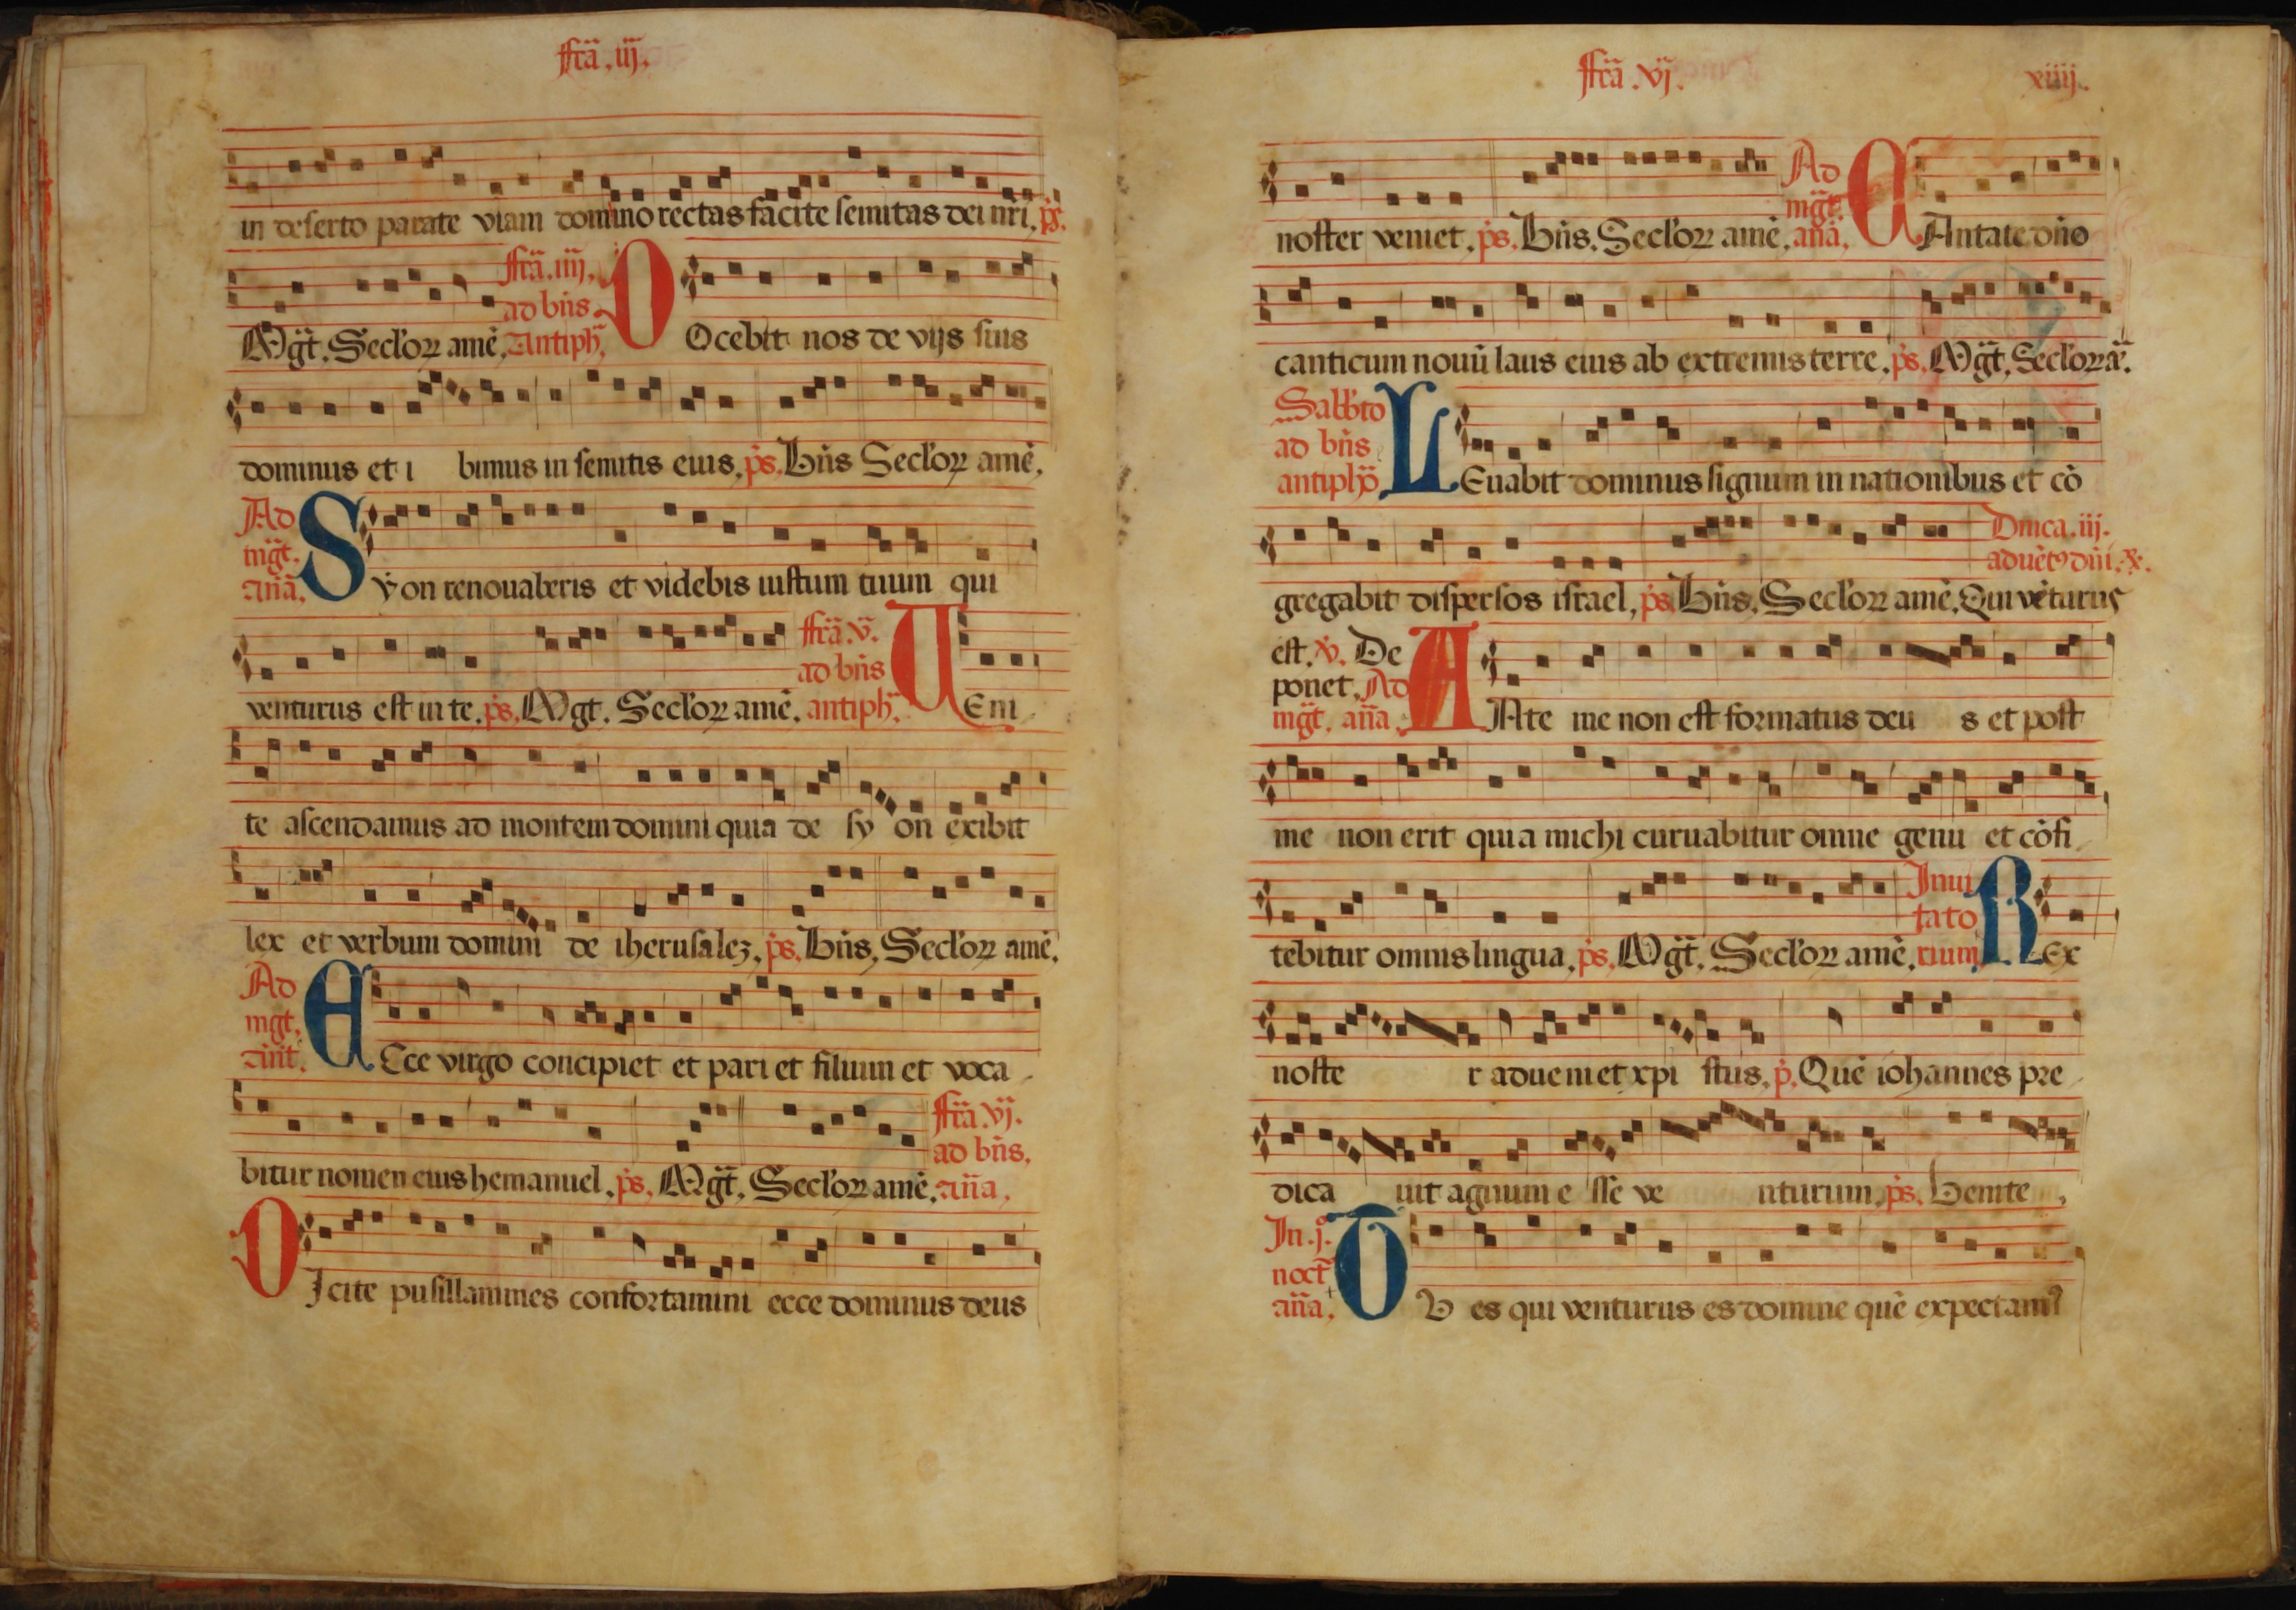 ffrã .iij.
in deserto parate viam domino rectas facite semitas dei nr̃i. p̃s.
Mg̃t. Seclorꝝ amẽ. ffrã .iiij. ad bñs. Antiph̃. Ocebit nos de vijs suis
dominus et i bimus in semitis eius. p̃s. Bñs Seclorꝝ amẽ.
Ad mg̃t. añã. Syon renouaberis et videbis iustum tuum qui
venturus est in te. p̃s. Mgt. Seclorꝝ amẽ. ffrã .v. ad bñs antiph̃. VEni
te ascendamus ad montem domini quia de sy on exibit
lex et verbum domini de iherusalez. p̃s. Bñs. Seclorꝝ amẽ.
Ad mgt. ãnt. Ecce virgo concipiet et pari et filium et voca
bitur nomen eius hemanuel. p̃s. Mg̃t. Seclorꝝ amẽ. ffrã .vj. ad bñs. añа.
DIcite pusillanimes confortamini ecce dominus deus
ffrã .vj. xiiij.
noster veniet. p̃s. Bñs. Seclorꝝ amẽ. Ad mg̃t. añã. CAntate dño
canticum nouũ laus eius ab extremis terre. p̃s. Mg̃t. Seclorꝝ ã.
Sabb̃to ad bñs antiphõ LEuabit dominus signum in nationibus et cõ
gregabit dispersos israel. p̃s. Bñs. Seclorꝝ amẽ. Dñica .iij. aduẽtꝰ dñi. ꝶ. Qui vẽturus
est. ꝟ. De ponet. Ad mg̃t. añа. ANte me non est formatus deu s et post
me non erit quia michi curuabitur omne genu et cõfi
tebitur omnis lingua. p̃s. Mg̃t. Seclorꝝ amẽ. Inui tato rium REx
noste r adueniet xpi stus. p̃. Quẽ iohannes pre
dica uit agnum e sse ve nturum. p̃s. Venite
In .j.° noct̃ añа. OV es qui venturus es domine quẽ expectamꝰ